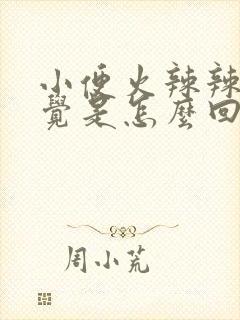 小便火辣辣
覺是怎麼回
周小荒